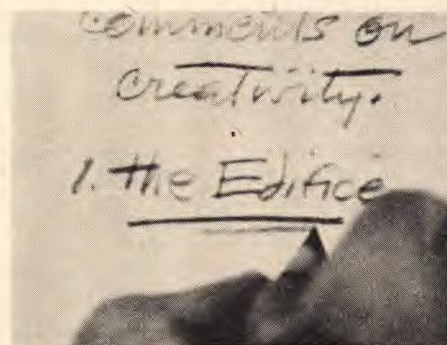 comments on
creativity.
1. the Edifice